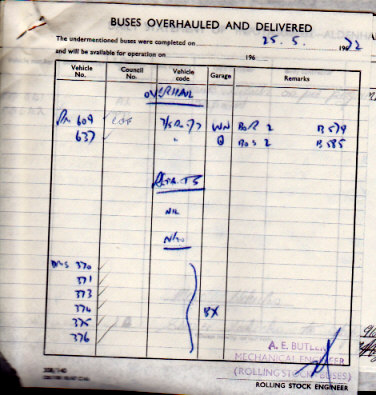 BUSES OVERHAULED AND DELIVERED
The undermentioned buses were completed on 25. 5. 1972
and will be available for operation on 196
Vehicle No. Council No. Vehicle code Garage Remarks
OVERHAUL
RM 609 WN BoR 2 B579
637 " Q BoS 2 B585
NIL
DMS 370
371
373
374 BX
375
376
A. E. BUTLER
MECHANICAL ENGINEER
(ROLLING STOCK-BUSES)
ROLLING STOCK ENGINEER